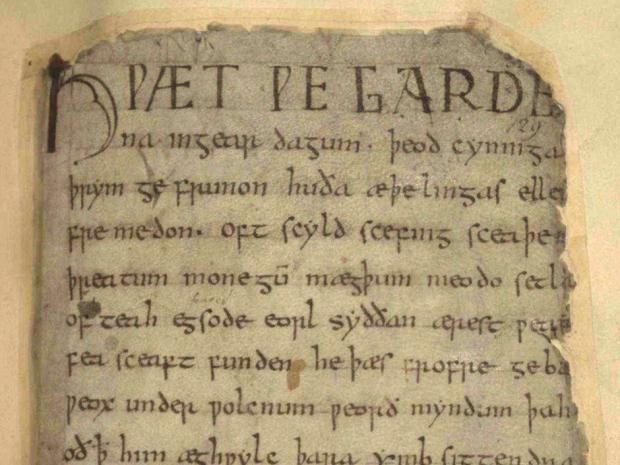 HǷÆT ǷE GARDE
na ingear dagum · þeod cyninga
þrym ge frunon huða æþelingas elle
fre medon · oft scyld scefing sceaþe
þreatum monegū mægþum meodo setla
of teah egsode eorl syððan ærest
fea sceaft funden he þæs frofre geba
ƿeox under ƿolcnum ƿeorð myndum þah
oð ꝥ him æghƿylc þara ymb sittendra
129